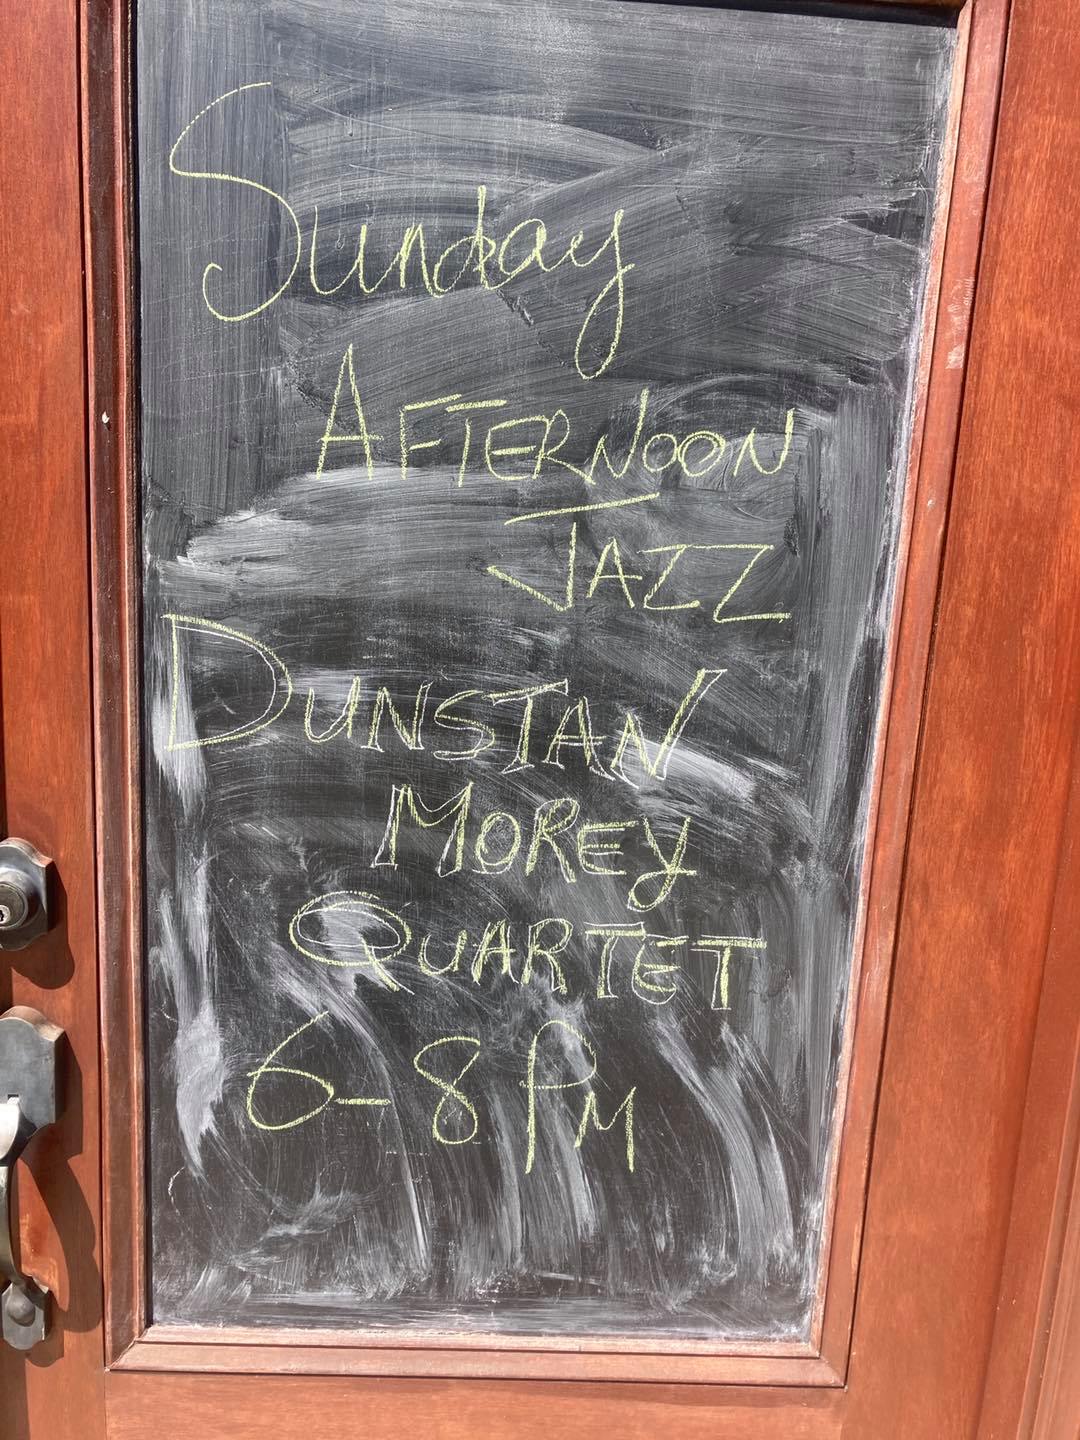 Sunday
AFTERNOON
JAZZ
DUNSTAN
MOREY
QUARTET
6-8 PM